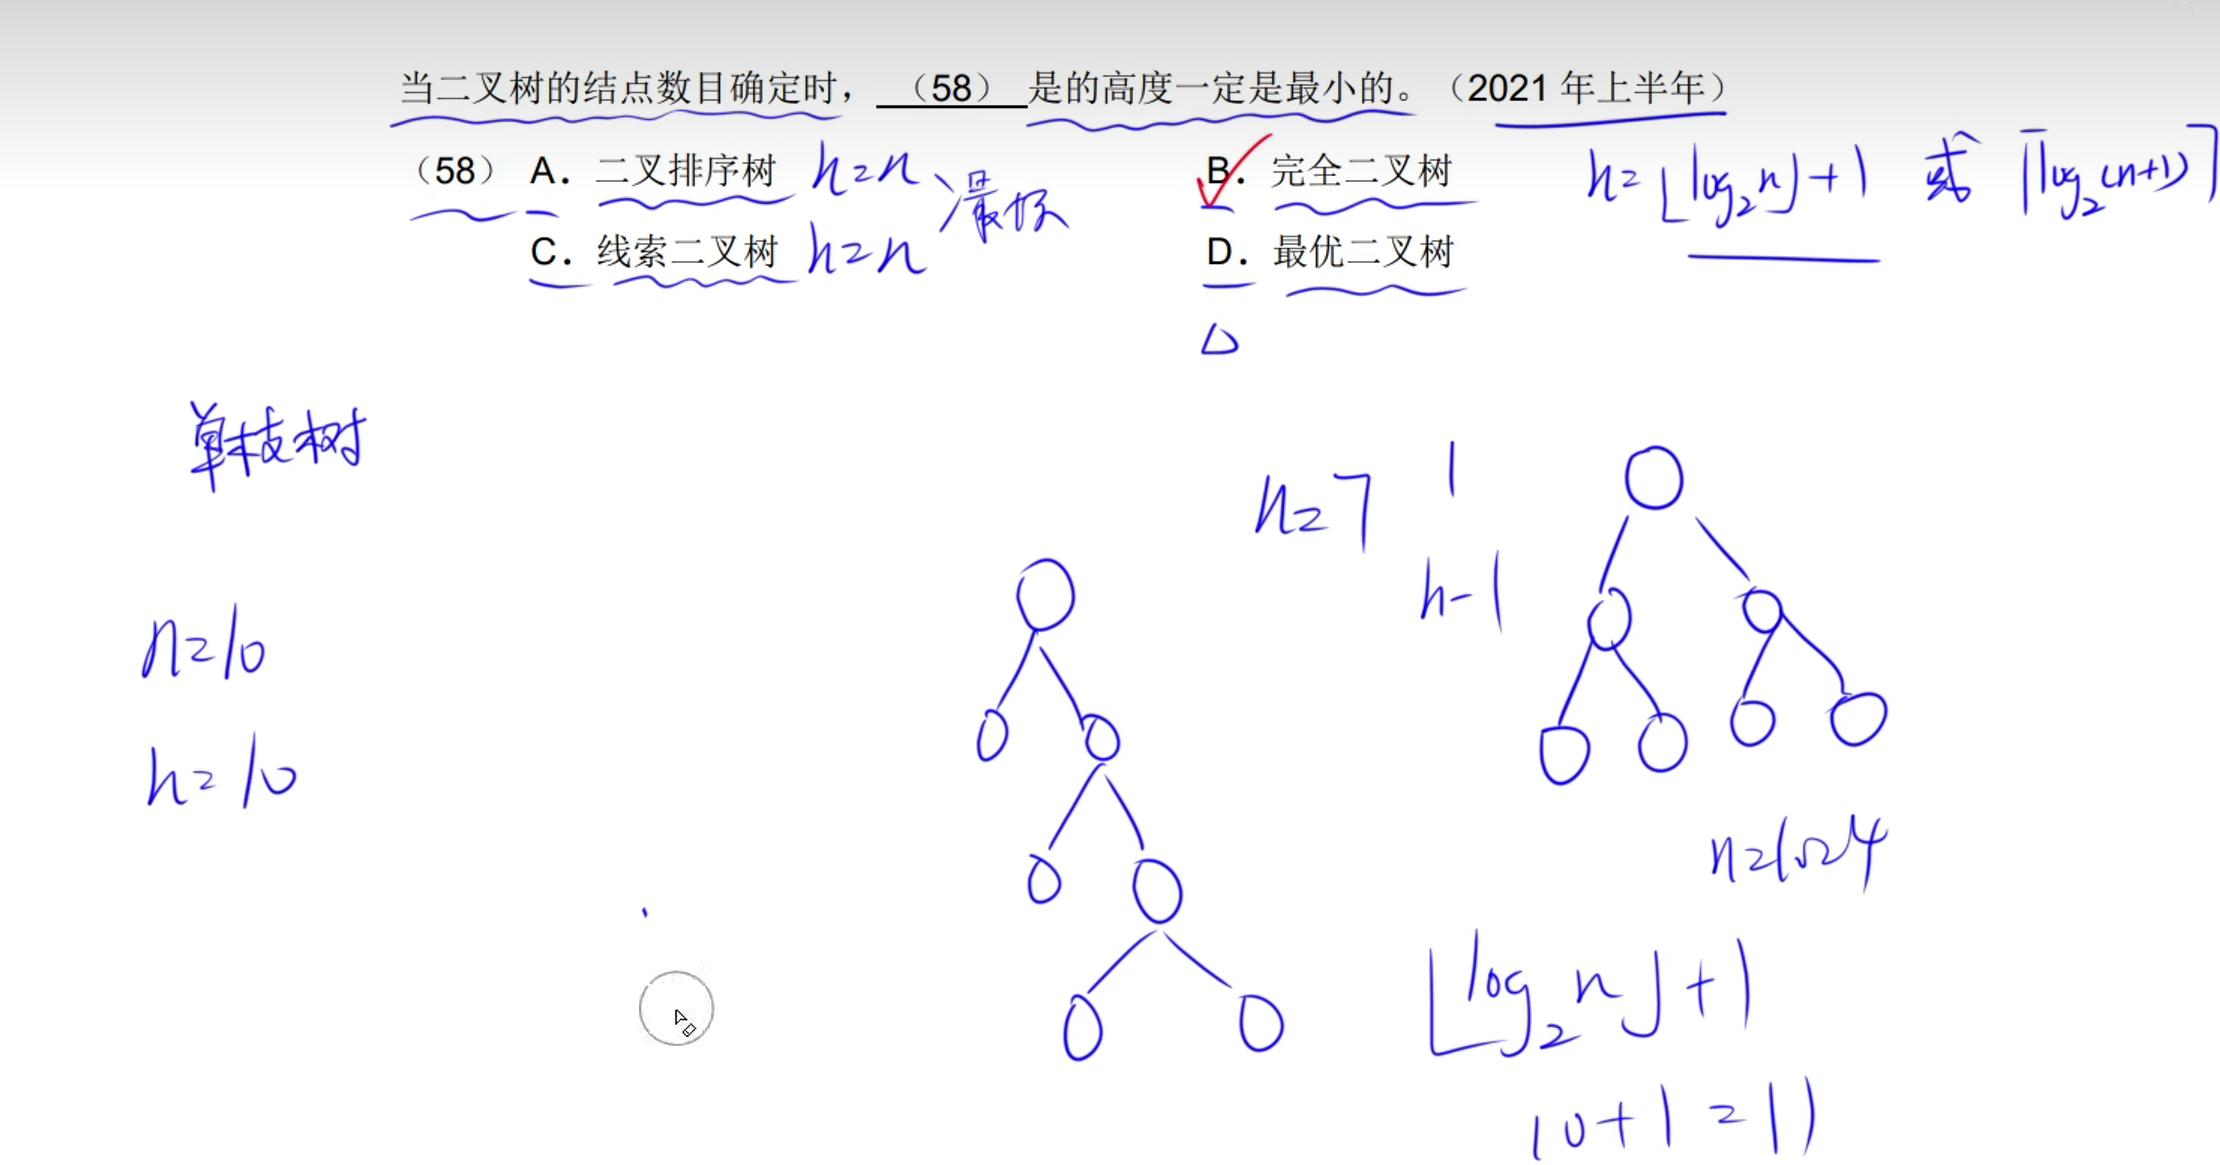 当二叉树的结点数目确定时，（58）是的高度一定是最小的。（2021 年上半年）
（58） A. 二叉排序树 h=n 最坏 B. 完全二叉树 h=⌊log₂n⌋+1 或 ⌈log₂(n+1)⌉
C. 线索二叉树 h=n D. 最优二叉树
单枝树
n=7 1
h-1
n=10
h=10
n=1024
⌊log₂n⌋+1
10+1=11